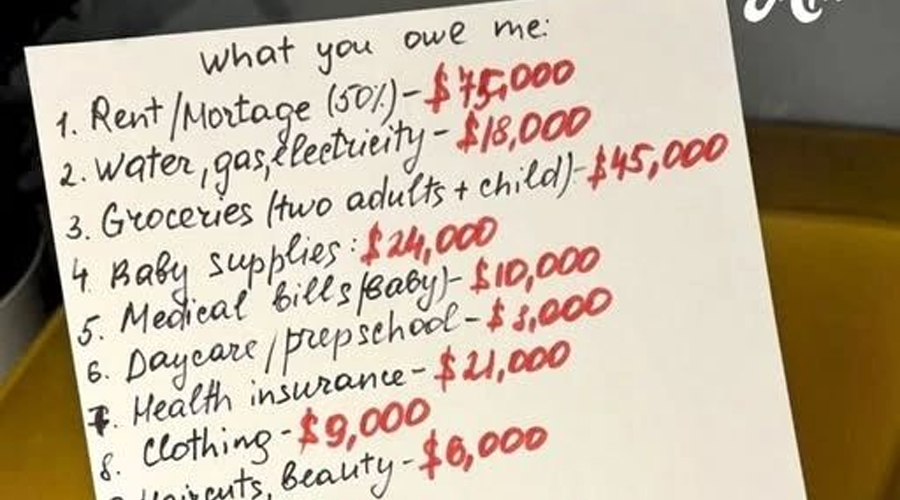 What you owe me:
1. Rent/Mortage (50%) - $75,000
2. Water, gas, electricity - $18,000
3. Groceries (two adults + child) - $45,000
4 Baby supplies: $24,000
5. Medical bills (Baby) - $10,000
6. Daycare/prepschool - $8,000
7. Health insurance - $21,000
8. Clothing - $9,000
Haircuts, Beauty - $6,000